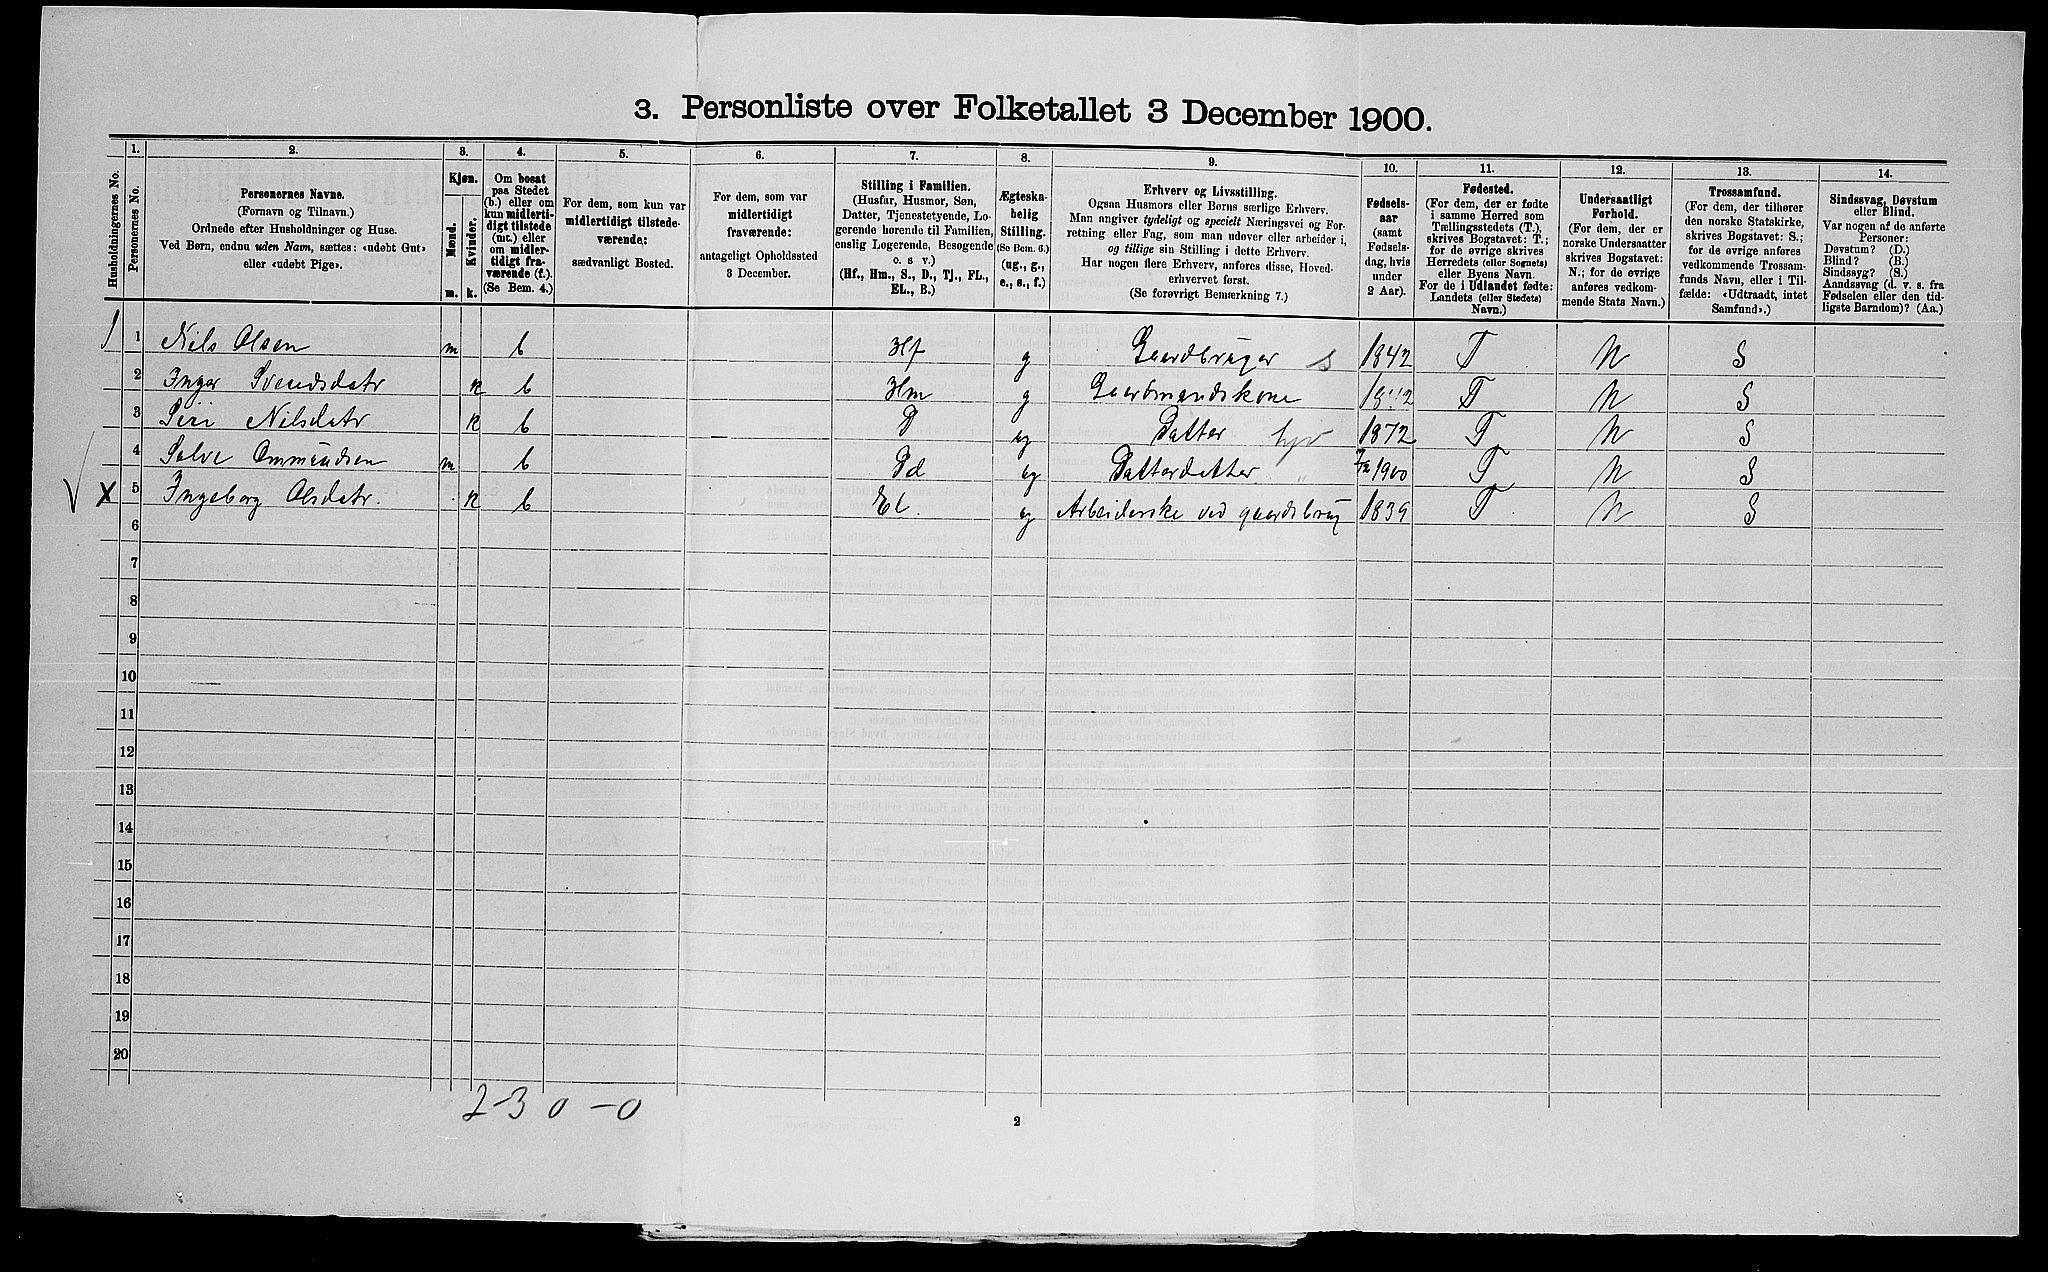 3. Personliste over Folketallet 3 December 1900.
Husholdningernes No.
1.
Personernes No.
2.
Personernes Navne.
(Fornavn og Tilnavn.)
Ordnede efter Husholdninger og Huse.
Ved Børn, endnu uden Navn, sættes: «udøbt Gut»
eller «udøbt Pige».
3.
Kjøn.
Mænd.
Kvinder.
m.
k.
4.
Om bosat
paa Stedet
(b.) eller om
kun midlerti-
digt tilstede
(mt.) eller
om midler-
tidigt fra-
værende (f.).
(Se Bem. 4.)
5.
For dem, som kun var
midlertidigt tilstede-
værende:
sædvanligt Bosted.
6.
For dem, som var
midlertidigt
fraværende:
antageligt Opholdssted
3 December.
7.
Stilling i Familien.
(Husfar, Husmor, Søn,
Datter, Tjenestetyende, Lo-
gerende hørende til Familien,
enslig Logerende, Besøgende
o. s v.)
(Hf., Hm., S., D., Tj., FL.,
EL., B.)
8.
Ægteska-
belig
Stilling.
(Se Bem. 6.)
(ug., g.,
e., s., f.)
9.
Erhverv og Livsstilling.
Ogsaa Husmors eller Børns særlige Erhverv.
Man angiver tydeligt og specielt Næringsvei og For-
retning eller Fag, som man udover eller arbeider i,
og tillige sin Stilling i dette Erhverv.
Har nogen flere Erhverv, anføres disse, Hoved-
erhvervet først.
(Se forøvrigt Bemærkning 7.)
10.
Fødsels-
aar
(samt
Fødsels-
dag, hvis
under
2 Aar).
11.
Fødested.
(For dem, der er fødte
i samme Herred som
Tællingsstedets (T.),
skrives Bogstavet: T.;
for de øvrige skrives
Herredets (eller Sognets)
eller Byens Navn.
For de i Udlandet fødte:
Landets (eller Stedets)
Navn.)
12.
Undersaatligt
Forhold.
(For dem, der er
norske Undersaatter
skrives Bogstavet:
N.; for de øvrige
anføres vedkom-
mende Stats Navn.)
13.
Trossamfund.
(For dem, der tilhører
den norske Statskirke,
skrives Bogstavet: S.;
for de øvrige anføres
vedkommende Trossam-
funds Navn, eller i Til-
fælde: «Udtraadt, intet
Samfund».)
14.
Sindssvag, Døvstum
eller Blind.
Var nogen af de anførte
Personer:
Døvstum? (D.)
Blind? (B.)
Sindssyg? (S.)
Aandssvag (d. v. s. fra
Fødselen eller den tid-
ligste Barndom)? (Aa.)
1 1 Nils Olsen m b Hf g Gaardbruger s 1842 T N S
2 Inger Svendsdatr k b Hm g Gaardmandskone 1842 T N S
3 Siri Nilsdatr k b D ug Datter 1872 T N S
4 Salve Ommundsen m b Dd ug Datterdatter 1900 T N S
X 5 Ingeborg Olsdatr. k b El. ug Arbeiderske ved gaardsbrug 1839 T N S
6
7
8
9
10
11
12
13
14
15
16
17
18
19
20
2-3 0-0
2